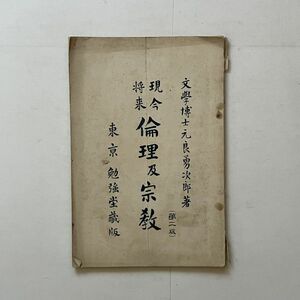 文學博士元良勇次郎著
(第二版)
現今
将来
倫理及宗教
東京 勉強堂蔵版